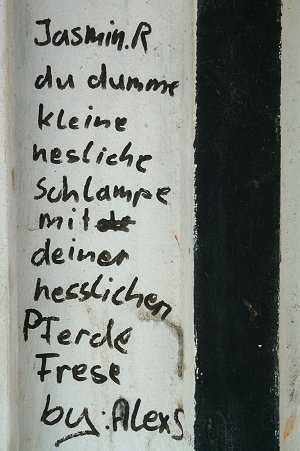 Jasmin.R
du dumme
kleine
hesliche
Schlampe
mit
deiner
hesslichen
Pferde
Frese
by: Alex S